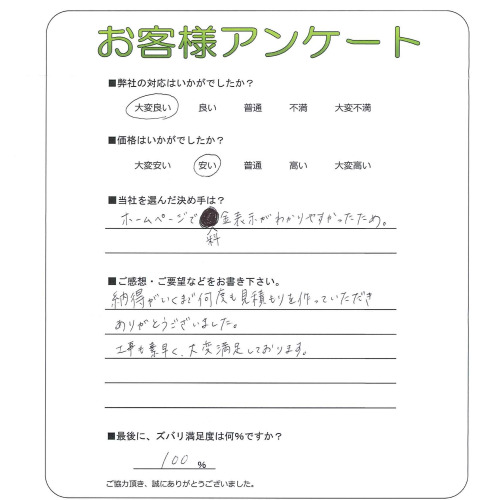 お客様アンケート
■弊社の対応はいかがでしたか？
大変良い 良い 普通 不満 大変不満
■価格はいかがでしたか？
大変安い 安い 普通 高い 大変高い
■当社を選んだ決め手は？
ホームページで料金表示がわかりやすかったため。
■ご感想・ご要望などをお書き下さい。
納得がいくまで何度も見積もりを作っていただき
ありがとうございました。
工事も素早く、大変満足しております。
■最後に、ズバリ満足度は何％ですか？
100 %
ご協力頂き、誠にありがとうございました。